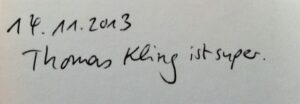 14.11.2013
Thomas Kling ist super.